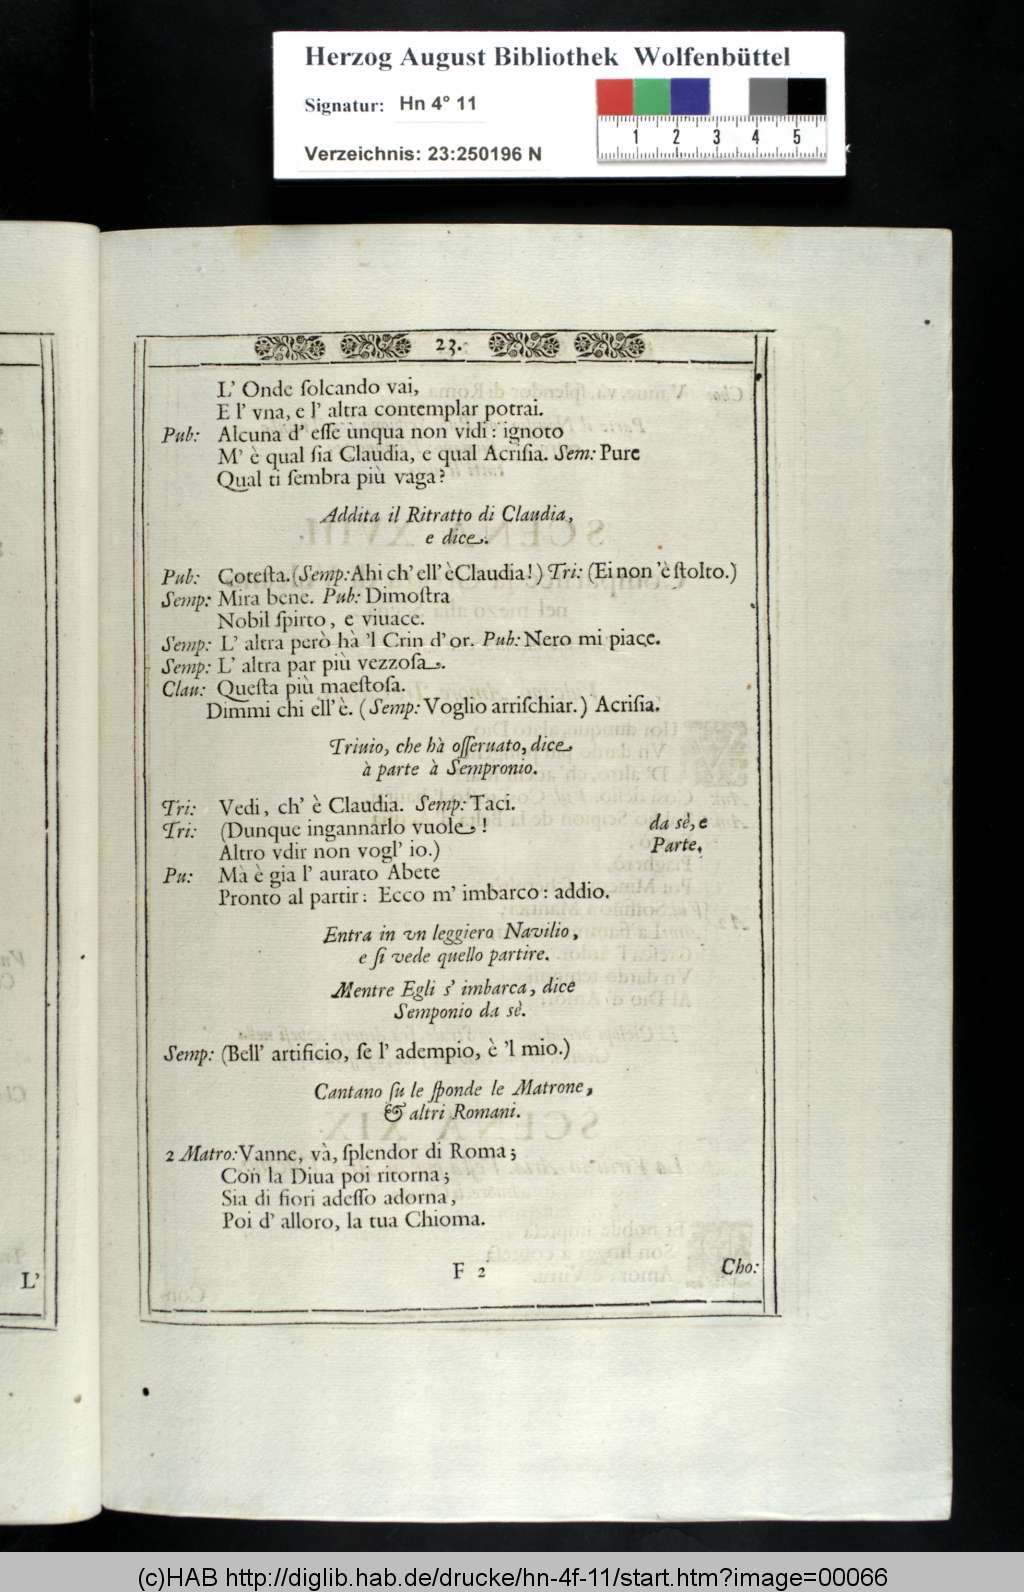 Herzog August Bibliothek Wolfenbüttel
Signatur: Hn 4° 11
Verzeichnis: 23:250196 N
1 2 3 4 5
23.
L' Onde ſolcando vai,
E l' vna, e l' altra contemplar potrai.
Pub: Alcuna d' eſſe unqua non vidi: ignoto
M' è qual ſia Claudia, e qual Acriſia. Sem: Pure
Qual ti ſembra più vaga?
Addita il Ritratto di Claudia,
e dice.
Pub: Coteſta. (Semp: Ahi ch' ell' è Claudia!) Tri: (Ei non 'è ſtolto.)
Semp: Mira bene. Pub: Dimoſtra
Nobil ſpirto, e viuace.
Semp: L' altra però hà 'l Crin d' or. Pub: Nero mi piace.
Semp: L' altra par più vezzoſa.
Clau: Queſta più maeſtoſa.
Dimmi chi ell' è. (Semp: Voglio arriſchiar.) Acriſia.
Triuio, che hà oſſeruato, dice
à parte à Sempronio.
Tri: Vedi, ch' è Claudia. Semp: Taci.
Tri: (Dunque ingannarlo vuole! da sè, e
Altro vdir non vogl' io.) Parte.
Pu: Mà è gia l' aurato Abete
Pronto al partir: Ecco m' imbarco: addio.
Entra in vn leggiero Navilio,
e ſi vede quello partire.
Mentre Egli s' imbarca, dice
Semponio da sè.
Semp: (Bell' artificio, ſe l' adempio, è 'l mio.)
Cantano ſu le ſponde le Matrone,
& altri Romani.
2 Matro: Vanne, và, ſplendor di Roma;
Con la Diua poi ritorna;
Sia di fiori adeſſo adorna,
Poi d' alloro, la tua Chioma.
F 2 Cho:
L'
(c)HAB http://diglib.hab.de/drucke/hn-4f-11/start.htm?image=00066